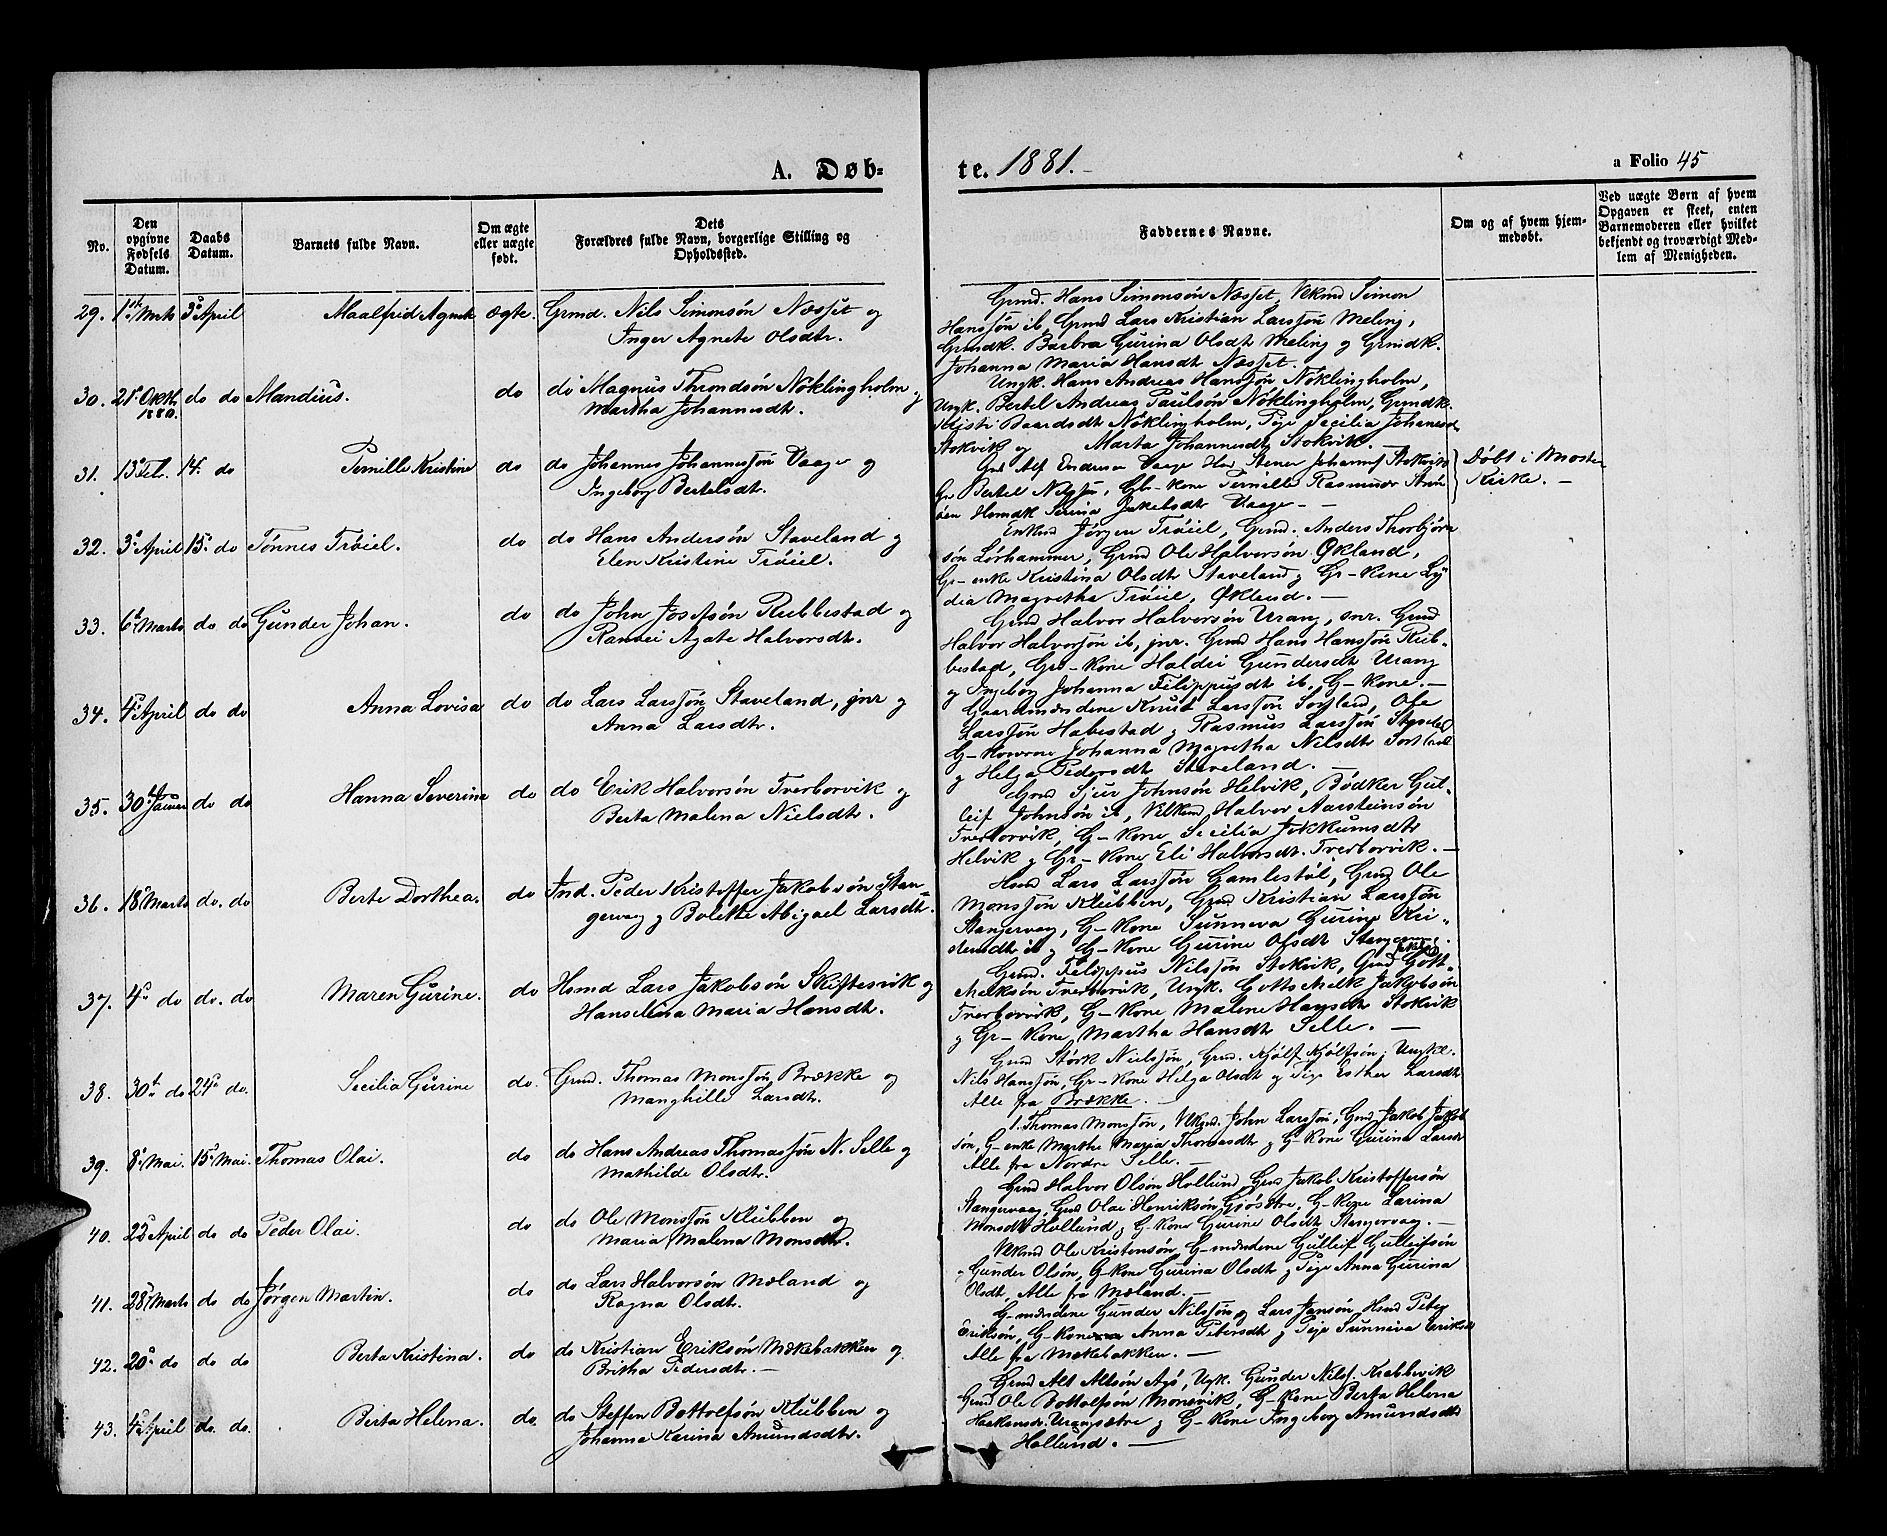 A. Døb-
te. 1881.
a Folio 45
No.
Den opgivne Fødsels Datum.
Daabs Datum.
Barnets fulde Navn.
Om ægte eller uægte født.
Dets Forældres fulde Navn, borgerlige Stilling og Opholdssted.
Faddernes Navne.
Om og af hvem hjemmedøbt.
Ved uægte Børn af hvem Opgaven er skeet, enten Barnemoderen eller hvilket bekjendt og troværdigt Medlem af Menigheden.
29. 1ste Marts 3die April Maalfrid Agnete ægte. Grmd. Nils Simonsön Næsset og
Inger Agnete Olsdtr.
Grmd. Hans Simonsön Næsset, Simon
Hanssön ib, Grmd Lars Kristian Larssön Meling,
Grmdk. Barbra Gurina Olsdt Meling og Grmdk.
Johanna Maria Hansdt Næsset.
30. 21. Oktb. 1880. do do Mandius. do do Magnus Throndsön Nöklingholm og
Martha Johannesdt.
Ungk. Hans Andreas Hanssön Nöklingholm,
Ungk. Bertel Andreas Paulsön Nöklingholm, Grmdk.
Baardsdt Nöklingholm, Pige Secilia Johanesd
Stokvik og Marta Johannesdt Stokvik.
31. 13. 14. do Pernille Kristine do do Johannes Johannessön Vaage og
Ingeborg Bertelsdt.
Endresen Vaage Stener Johannes Stokvik
Gr Bertel Nilssön, Gr-kone Pernille Rasmusdr
Serina Jakobsdt Vaage.
Döbt i Moster
Kirke.
32. 3. April 15. do Tönnes Tröiel. do do Hans Andersön Staveland og
Elen Kristine Tröiel.
Enkmd Jörgen Tröiel, Grmd. Anders Thorbjörn
sön Lörhammer, Grmd Ole Halvorsön Økland,
Gr-enke Kristina Olsdt Staveland og Gr-kone Ly
dia Magrethe Tröiel, Økland.
33. 6te Marts do do Gunder Johan. do do John Josefsön Rubbestad og
Ranvei Agate Halvorsdt.
Grmd Halvor Halvorsön Urang, snr. Grmd
Halvor Halvorsön ib, jnr. Grmd Hans Hanssön Rub-
bestad, Gr-kone Haldri Gundersdt Urang
og Ingeborg Johanna Filippusdt ib. G-kone.
34. 4. April do do Anna Lovisa do do Lars Larssön Staveland, jnr og
Anna Larsdtr.
Gaardmændene Knut Larssön Sortland, Ole
Larssön Habestad og Rasmus Larssön
G-konerne Johanna Magretha Nilsdt Sortland
og Helga Pedersdt Staveland.
35. 30te Januar do do Hanna Severine do do Erik Halvorsön Tverborvik og
Berta Malena Nielsdtr.
Grmd Sjur Johnsön Helvik, Bödker Gul-
leif Johnsön ib, Halvor Aarsteinsön
Tverborvik, G-kone Secilia Jokkumsdt
Helvik og Gr-kone Eli Halvorsdt. Tverborvik.
36. 18. Marts do. do Berte Dorthea. do Ind. Peder Kristoffer Jakobsön Stan-
gervag og Bolette Abigael Larsdt.
Hsmd Lars Larssön Gamlestöl, Grmd Ole
Monssön Klubben, Grmd Kristian Larssön
Stangervag, G-kone Sunneva Gurine Kri-
stensdt ib og G-kone Gurine Olsdt Stangervag.
37. 4. do do. do Maren Gurine. do Hsmd Lars Jakobsön Skiftesvik og
Hanselina Maria Hansdt.
Grmd. Filippus Nilssön Stokvik, Grmd Gott-
Melksön Tverborvik, Ungk. Gottsmelk Jakobsön
Tverborvik, G-kone Malene Hansdt Stokvik
og Gr-kone Martha Hansdt Selle.
38. 30te do 24. do. Secilia Gurine do. Grmd. Thomas Monssön Brække og
Manghille Larsdt.
Grmd Störk Nielssön, Grmd. Kjölf Kjölfsön, Ungkl.
Nils Hanssön, Gr-kone Helga Olsdt og Pige Esther Larsdt
Alle fra Brække.
39. 8. Mai. 15. Mai. Thomas Olai. do do Hans Andreas Thomassön N. Selle og
Mathilde Olsdt.
Thomas Monssön, John Larssön, Grmd Jakob Jakob
sön, G-enke Marthe Maria Thomasdt og G-kone Gurina Larsdt
Alle fra Nordre Selle.
40. 22. April do do Peder Olai. do do Ole Monssön Klubben og
Maria Malena Monsdtr.
Grmd Halvor Olsön Hollund, Grmd Jakob Kristoffersön
Stangervaag, Grmd Olai Henriksön, Gjösætre, G-kone Larina
Monsdt Hollund og G-kone Gurine Olsdt Stangervag.
41. 28. Marts do do Jörgen Martin. do do Lars Halvorsön Mæland og
Ragna Olsdt.
Ole Kristensön, G-mændene Gulleif Gulleifsön
og Gunder Olsön, G-kone Gurina Olsdt og Pige Anna Gurina
Olsdt, Alle fra Mæland.
42. 20. do do do Berta Kristina. do do Kristian Eriksön Mækebakken og
Britha Pedersdt.
G-mændene Gunder Nilssön og Lars Jansön, Hsmd Peter
Eriksön, G-kone Anna Petersdt og Pige Sunneva Eriksdt
Alle fra Mækebakken.
43. 4. April do. do. Berta Helena. do. do Steffen Bottolfsön Klubben og
Johanna Karina Amundsdt.
Grmd Alt Altsön Agö, Ugk. Gunder Nilss. Krabbevik
Grmd Ole Bottolfsön Monsvik, G-kone Berta Helena
Haakensdr. Urangsætre og G-kone Ingeborg Amundsdtr
Hollund.